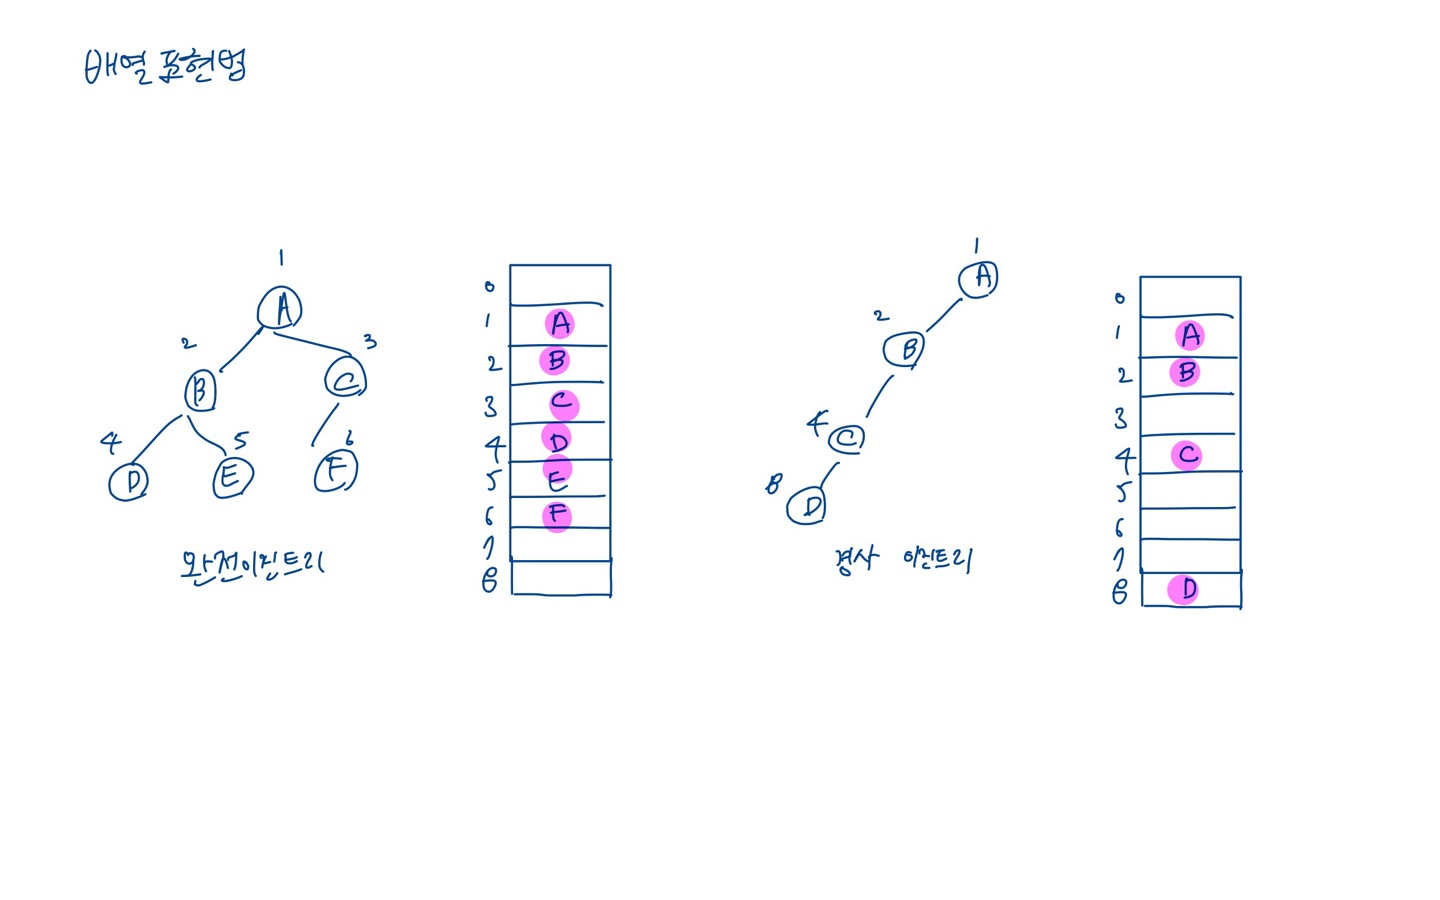 배열 표현법
1
A
2
3
B
C
4
5
6
D
E
F
완전이진트리
0
1 A
2 B
3 C
4 D
5 E
6 F
7
8
1
A
2
B
4
C
8
D
경사 이진트리
0
1 A
2 B
3
4 C
5
6
7
8 D